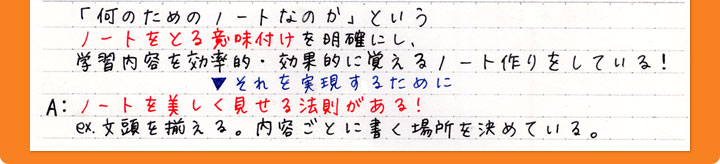 「何のためのノートなのか」という
ノートをとる意味付けを明確にし、
学習内容を効率的・効果的に覚えるノート作りをしている!
▼それを実現するために
A:ノートを美しく見せる法則がある!
ex.文頭を揃える。内容ごとに書く場所を決めている。